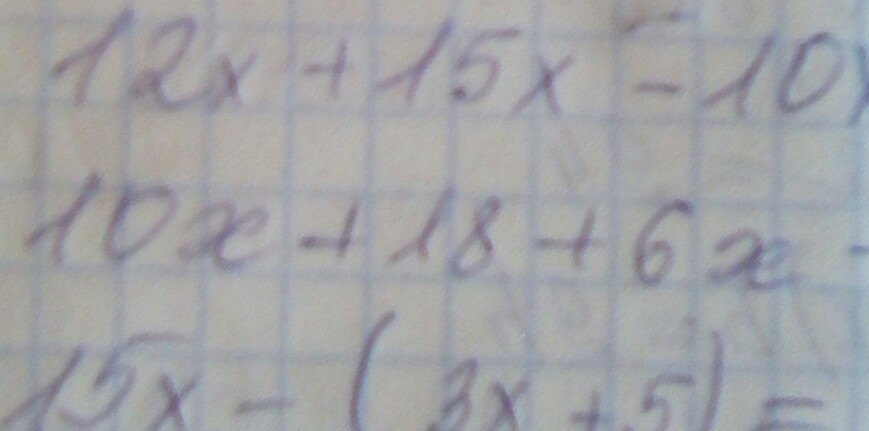 12x + 15x - 10x
10x + 18 + 6x -
15x - (3x + 5) =